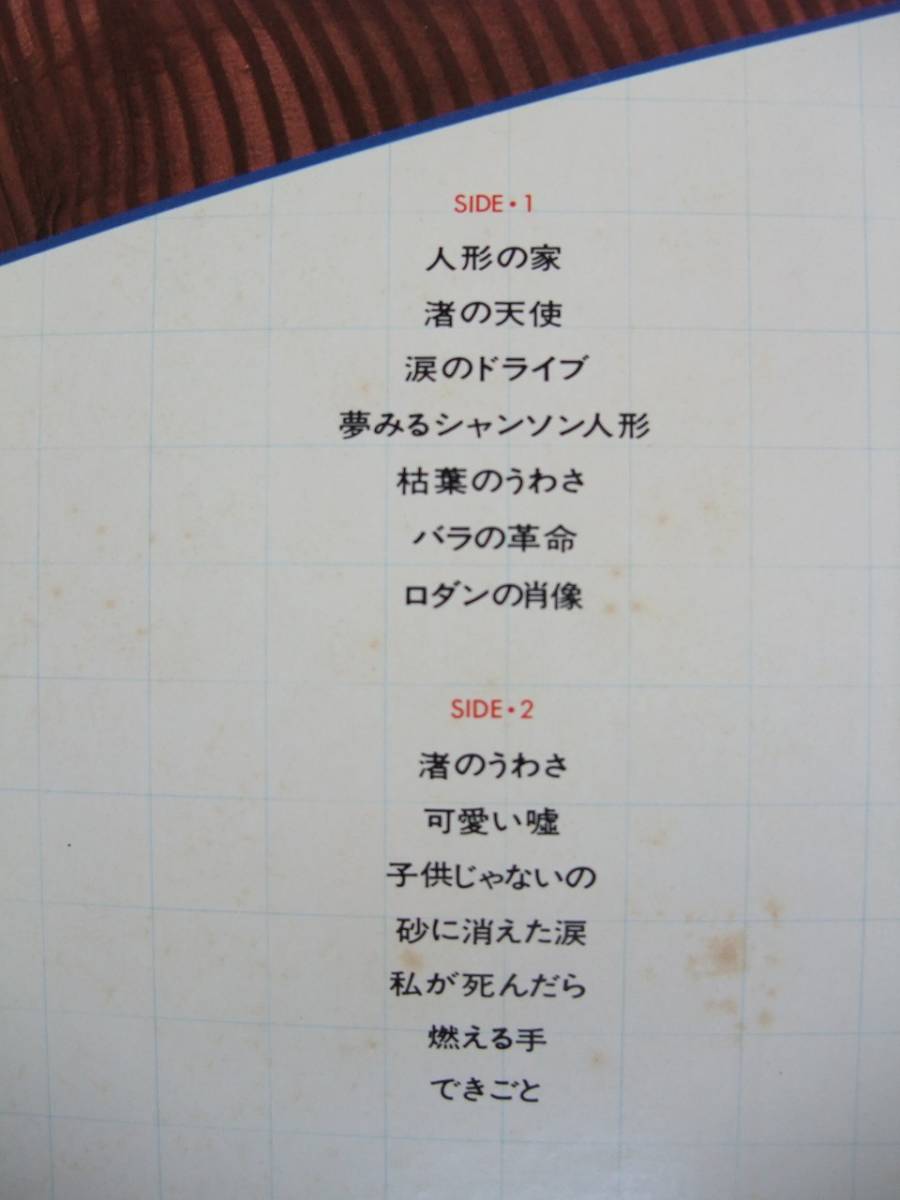 SIDE・1
人形の家
渚の天使
涙のドライブ
夢みるシャンソン人形
枯葉のうわさ
バラの革命
ロダンの肖像
SIDE・2
渚のうわさ
可愛い嘘
子供じゃないの
砂に消えた涙
私が死んだら
燃える手
できごと